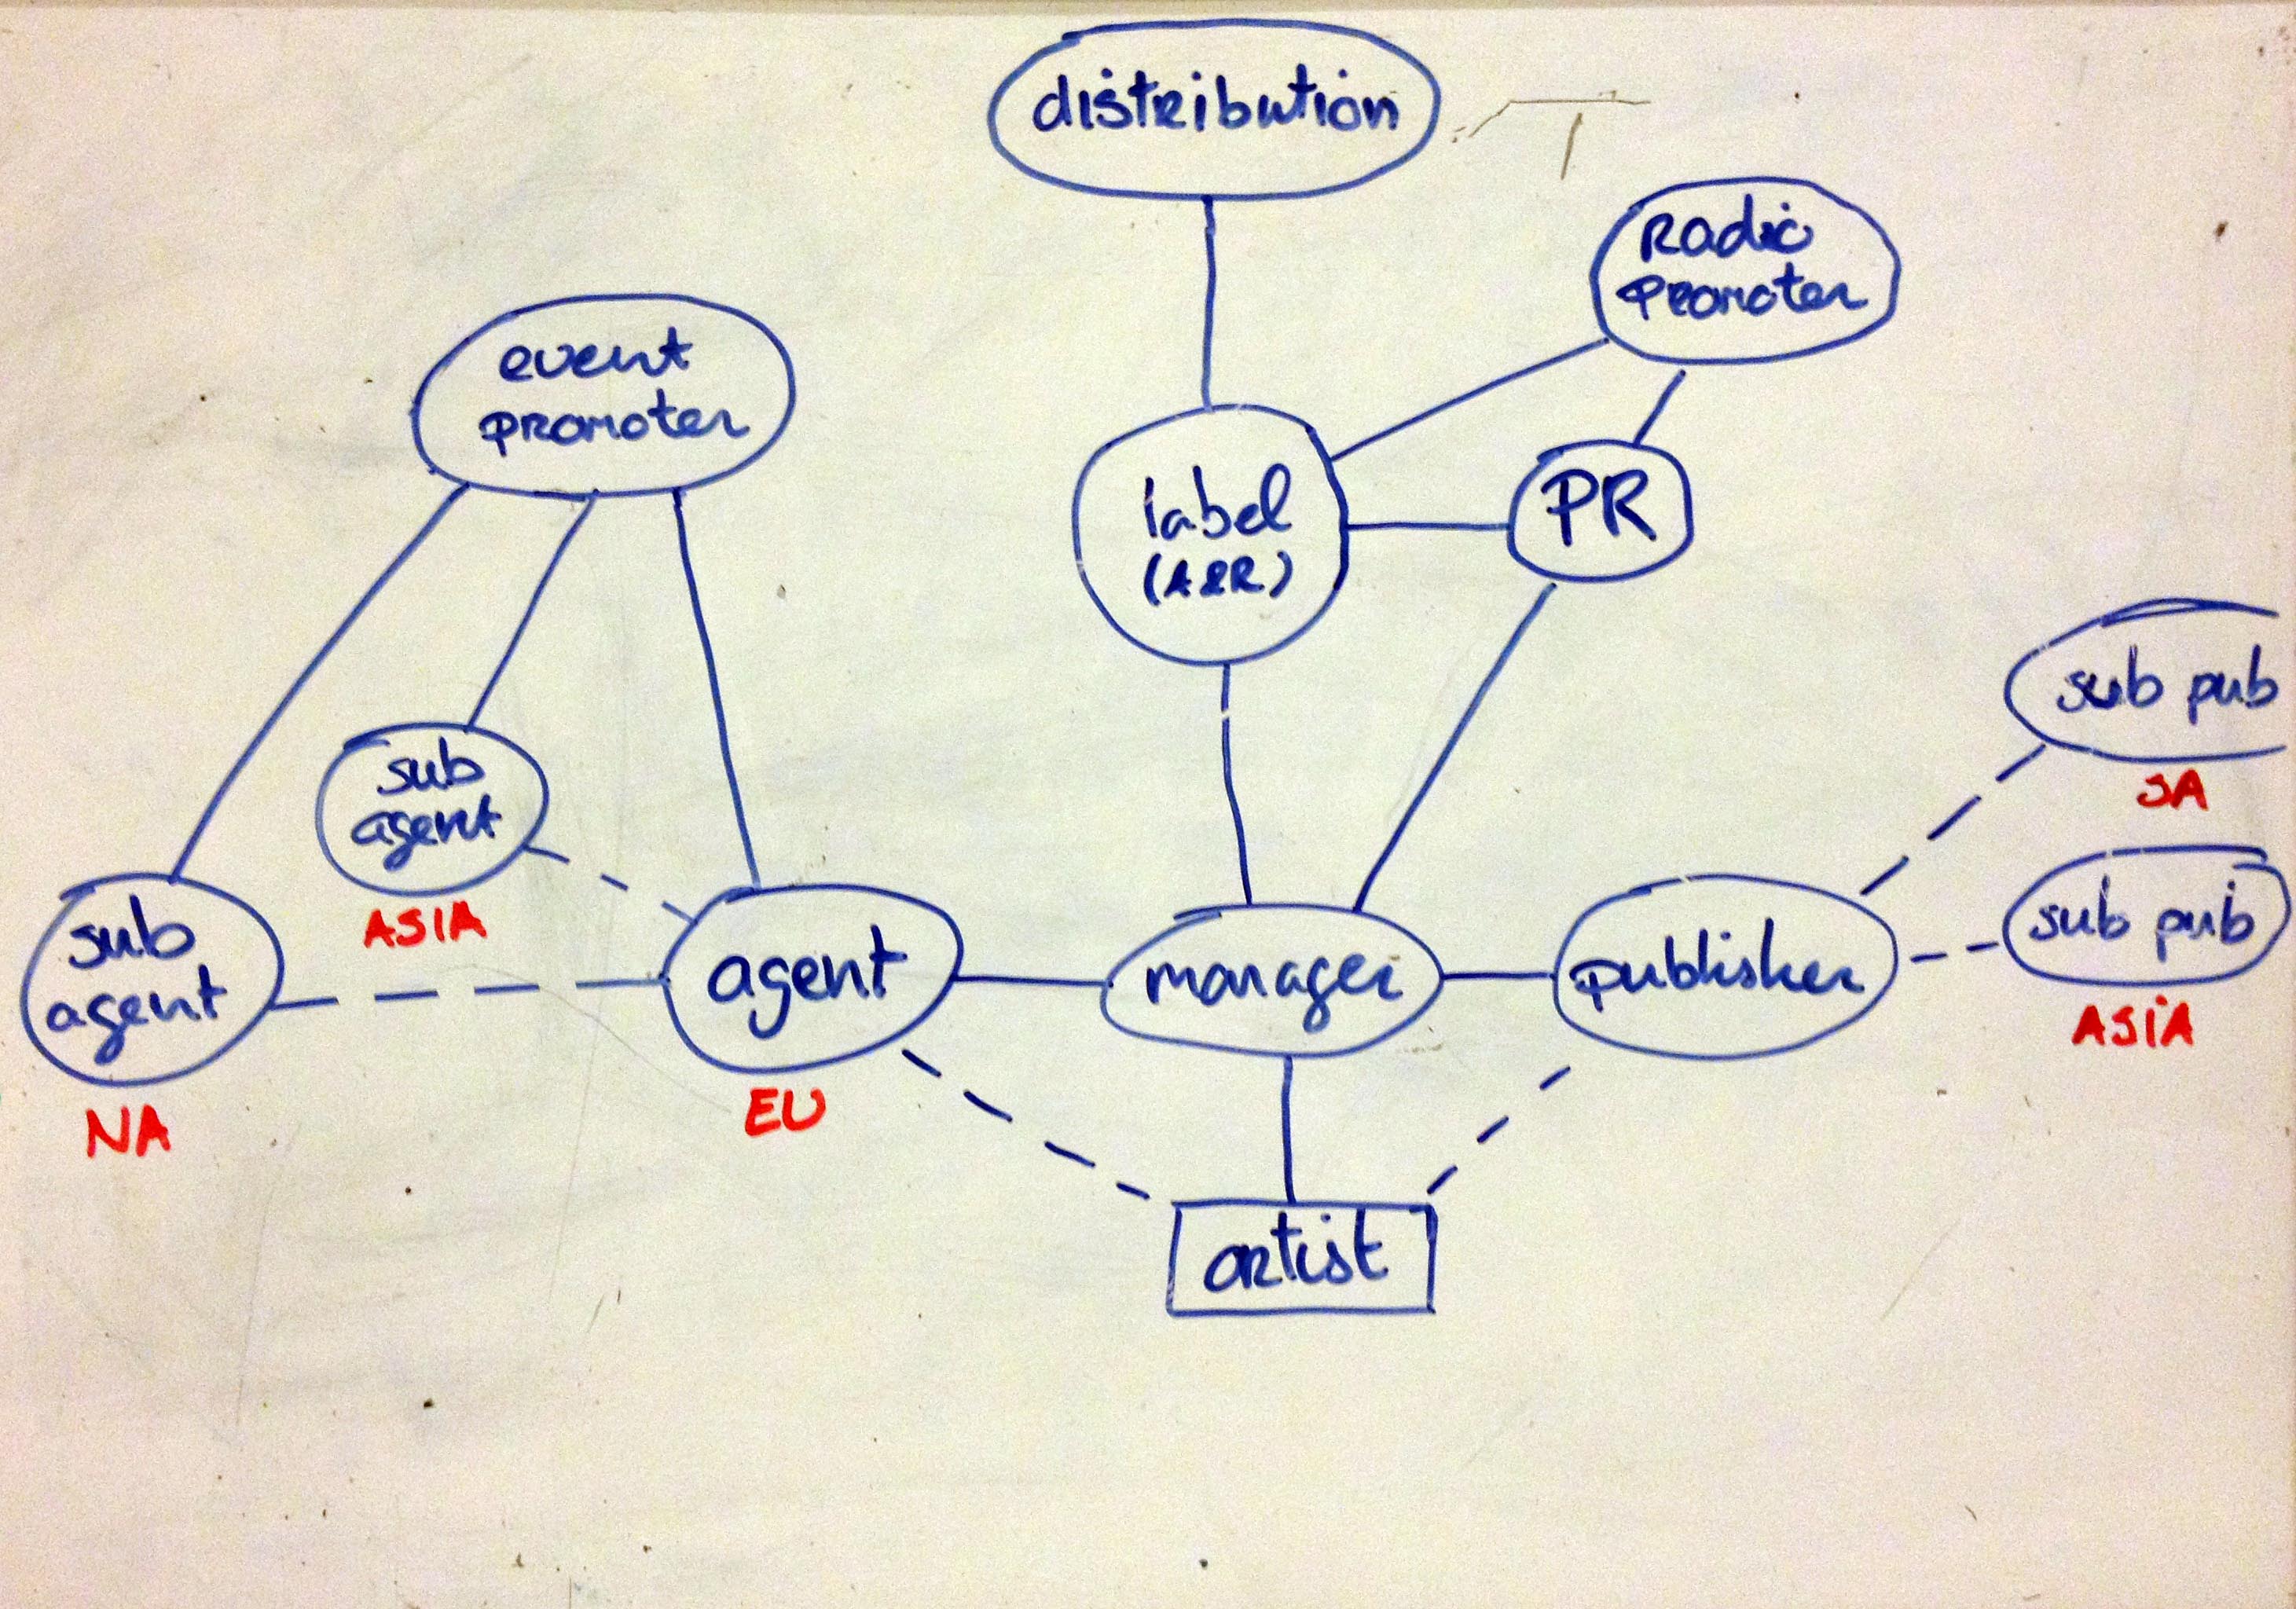 distribution
Radio
Promoter
event
promoter
label
(A&R)
PR
sub pub
SA
sub
agent
ASIA
sub
agent
NA
agent
EU
manager
publisher
sub pub
ASiA
artist